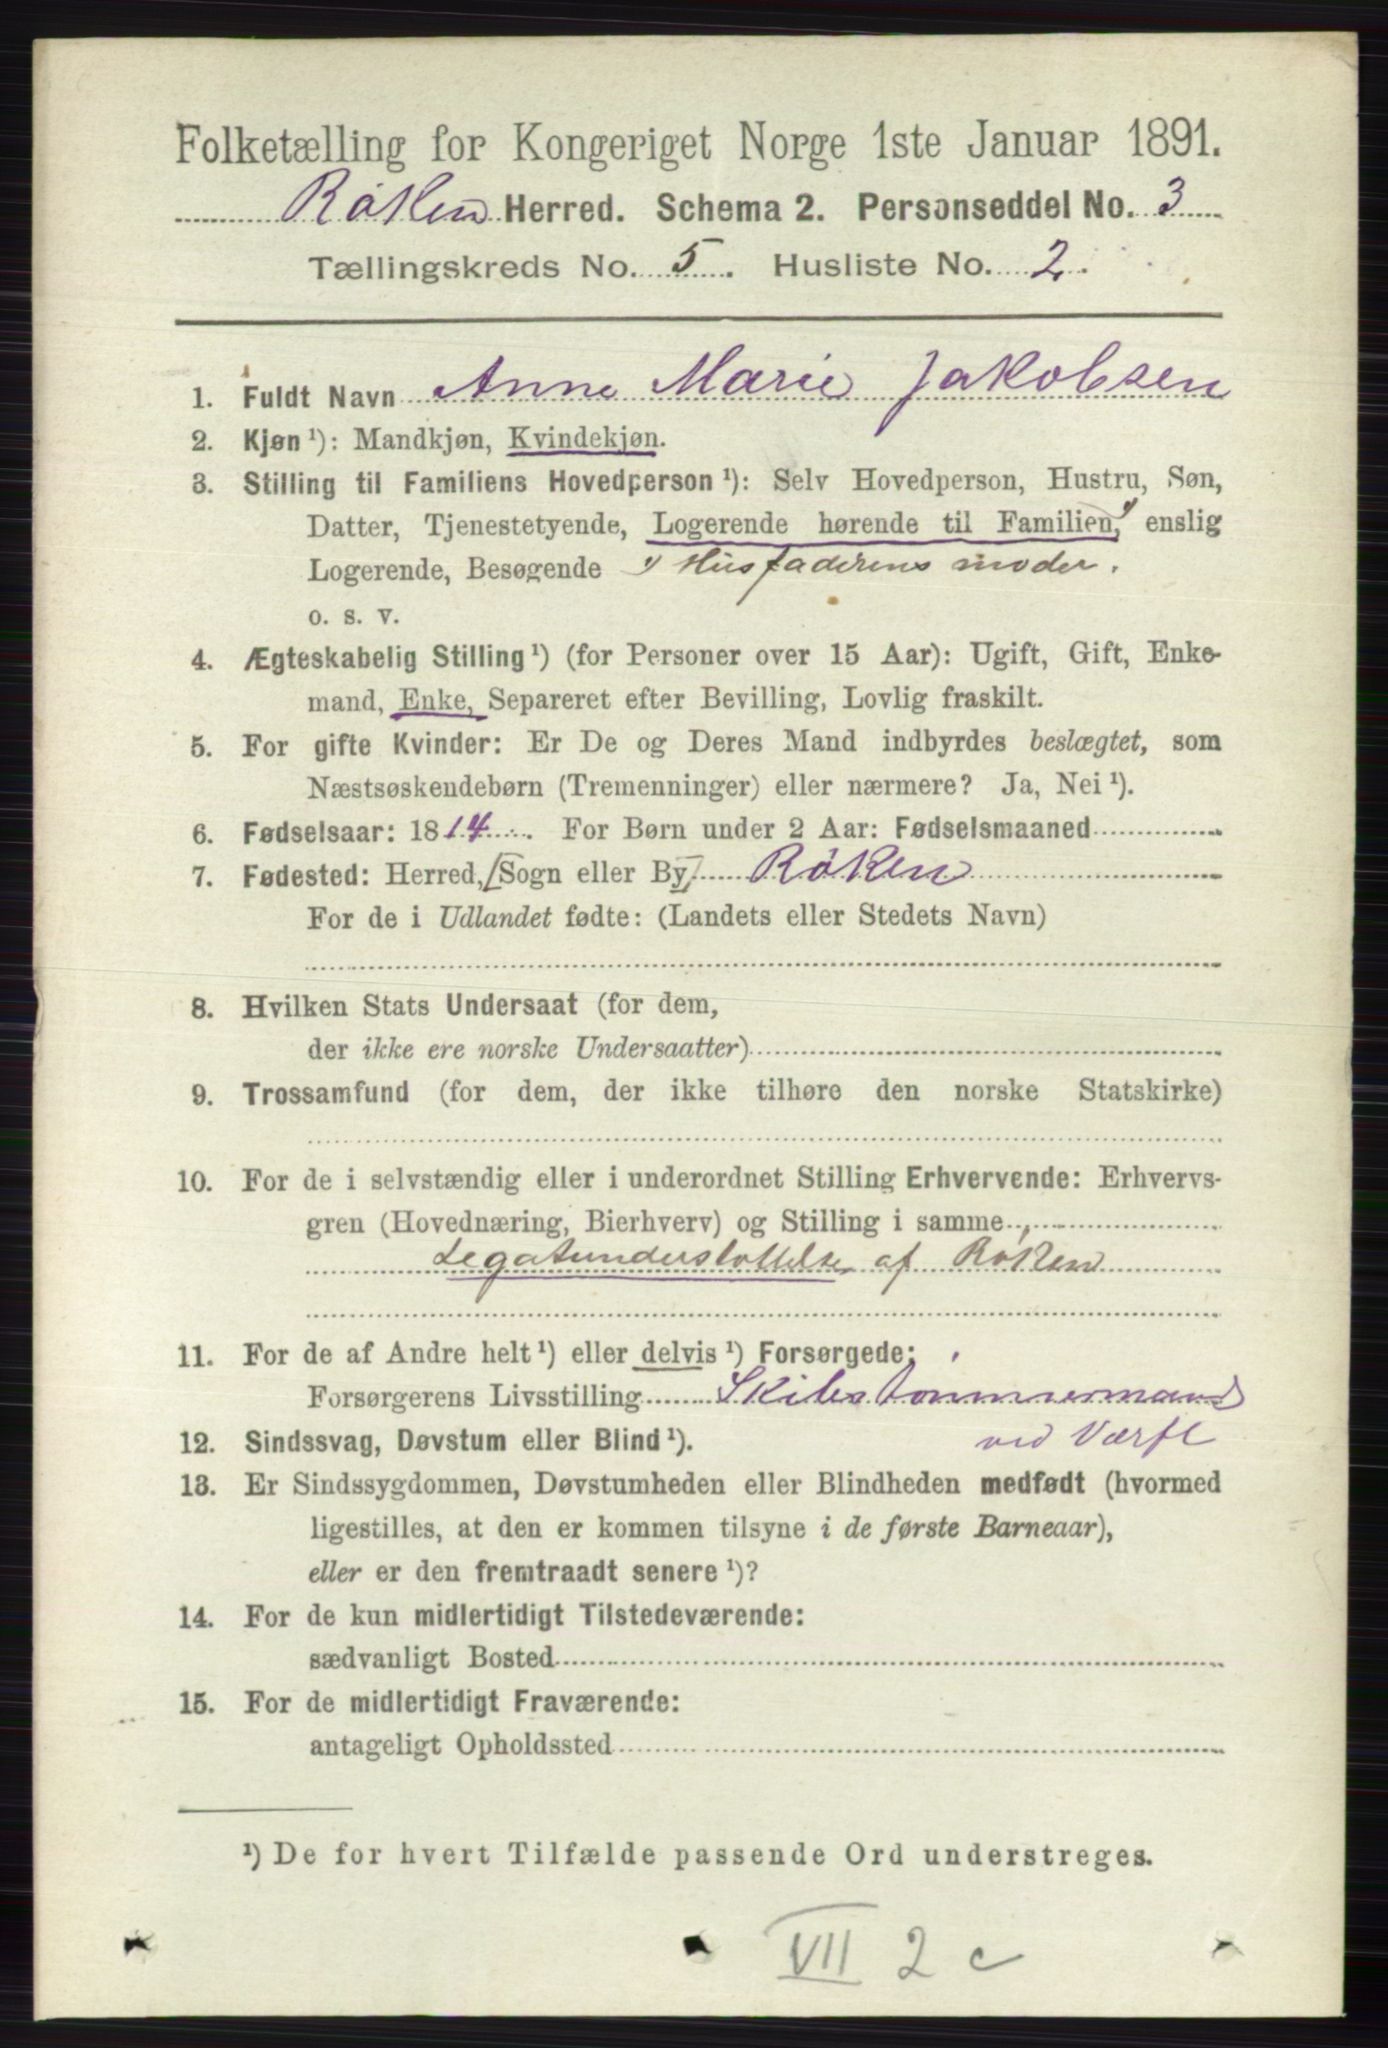 Folketælling for Kongeriget Norge 1ste Januar 1891.
Røken Herred. Schema 2. Personseddel No. 3
Tællingskreds No. 5. Husliste No. 2.
1. Fuldt Navn Anne Marie Jakobsen
2. Kjøn ¹): Mandkjøn, Kvindekjøn.
3. Stilling til Familiens Hovedperson ¹): Selv Hovedperson, Hustru, Søn,
Datter, Tjenestetyende, Logerende hørende til Familien, enslig
Logerende, Besøgende Husfaderens moder.
o. s. v.
4. Ægteskabelig Stilling ¹) (for Personer over 15 Aar): Ugift, Gift, Enke-
mand, Enke, Separeret efter Bevilling, Lovlig fraskilt.
5. For gifte Kvinder: Er De og Deres Mand indbyrdes beslægtet, som
Næstsøskendebørn (Tremenninger) eller nærmere? Ja, Nei ¹).
6. Fødselsaar: 1814. For Børn under 2 Aar: Fødselsmaaned
7. Fødested: Herred, [Sogn eller By] Røken
For de i Udlandet fødte: (Landets eller Stedets Navn)
8. Hvilken Stats Undersaat (for dem,
der ikke ere norske Undersaatter)
9. Trossamfund (for dem, der ikke tilhøre den norske Statskirke)
10. For de i selvstændig eller i underordnet Stilling Erhvervende: Erhvervs-
gren (Hovednæring, Bierhverv) og Stilling i samme
Legatunderstøttelse af Røken
11. For de af Andre helt ¹) eller delvis ¹) Forsørgede:
Forsørgerens Livsstilling Skibstømmermand
12. Sindssvag, Døvstum eller Blind ¹). ved Værft
13. Er Sindssygdommen, Døvstumheden eller Blindheden medfødt (hvormed
ligestilles, at den er kommen tilsyne i de første Barneaar),
eller er den fremtraadt senere ¹)?
14. For de kun midlertidigt Tilstedeværende:
sædvanligt Bosted
15. For de midlertidigt Fraværende:
antageligt Opholdssted
¹) De for hvert Tilfælde passende Ord understreges.
VII 2 c